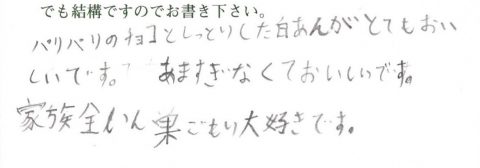 でも結構ですのでお書き下さい。
パリパリのチョコとしっとりした白あんがとてもおい
しいです。 あますぎなくておいしいです。
家族全いん 巣ごもり大好きです。